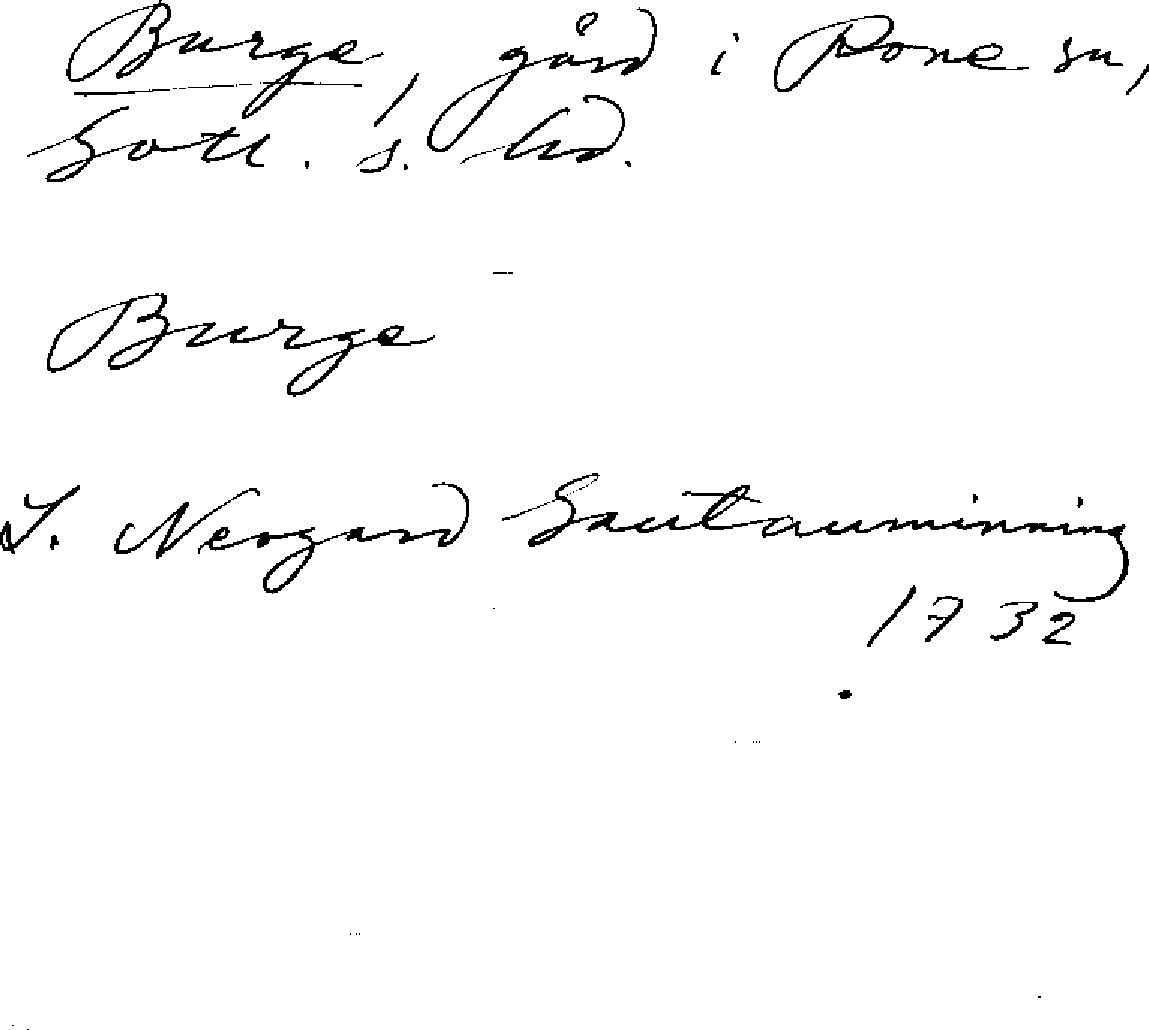 Burge, gård i Rone sn,
Gotl. s. hd.
Burge
I. Neogard Gautauminning
1732